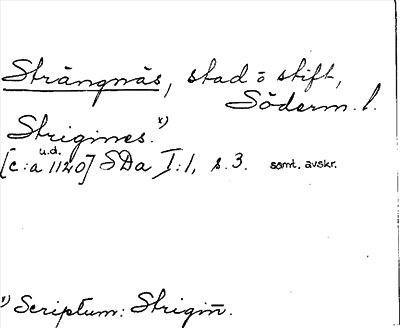 Strängnäs, stad o stift,
Söderm. l.
Strigines. x)
u.d.
[c:a 1120] SDa I:1, s. 3. samt. avskr.
x) Scriptum: Strigin̄.